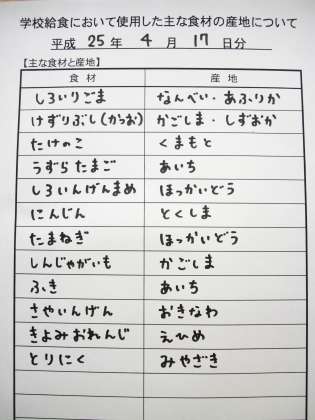 学校給食において使用した主な食材の産地について
平成 25 年 4 月 17 日分
【主な食材と産地】
食材 産地
しろいりごま なんべい・あふりか
けずりぶし(かつお) かごしま・しずおか
たけのこ くまもと
うずらたまご あいち
しろいんげんまめ ほっかいどう
にんじん とくしま
たまねぎ ほっかいどう
しんじゃがいも かごしま
ふき あいち
さやいんげん おきなわ
きよみおれんじ えひめ
とりにく みやざき